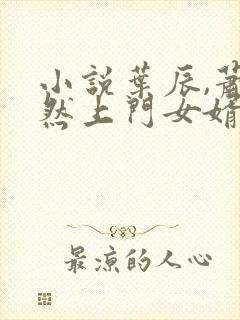 小說葉辰,蕭
然上門女婿
最涼的人心